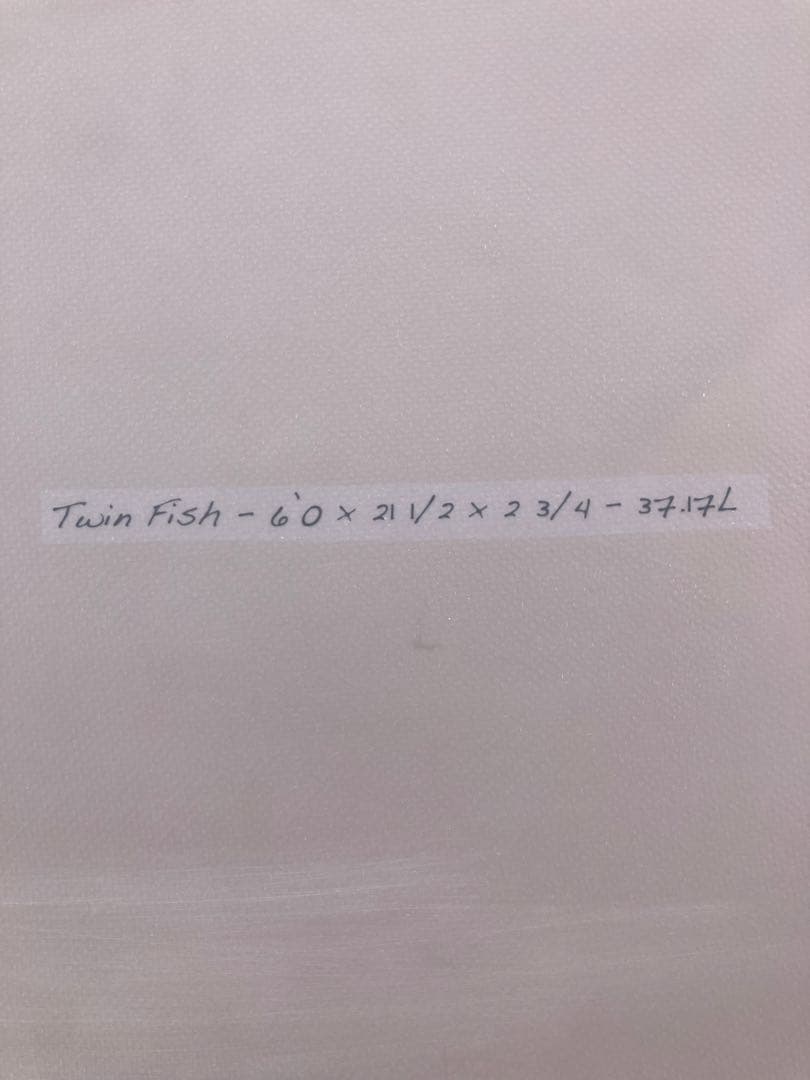 Twin Fish - 6'0 x 21 1/2 x 2 3/4 - 37.17L